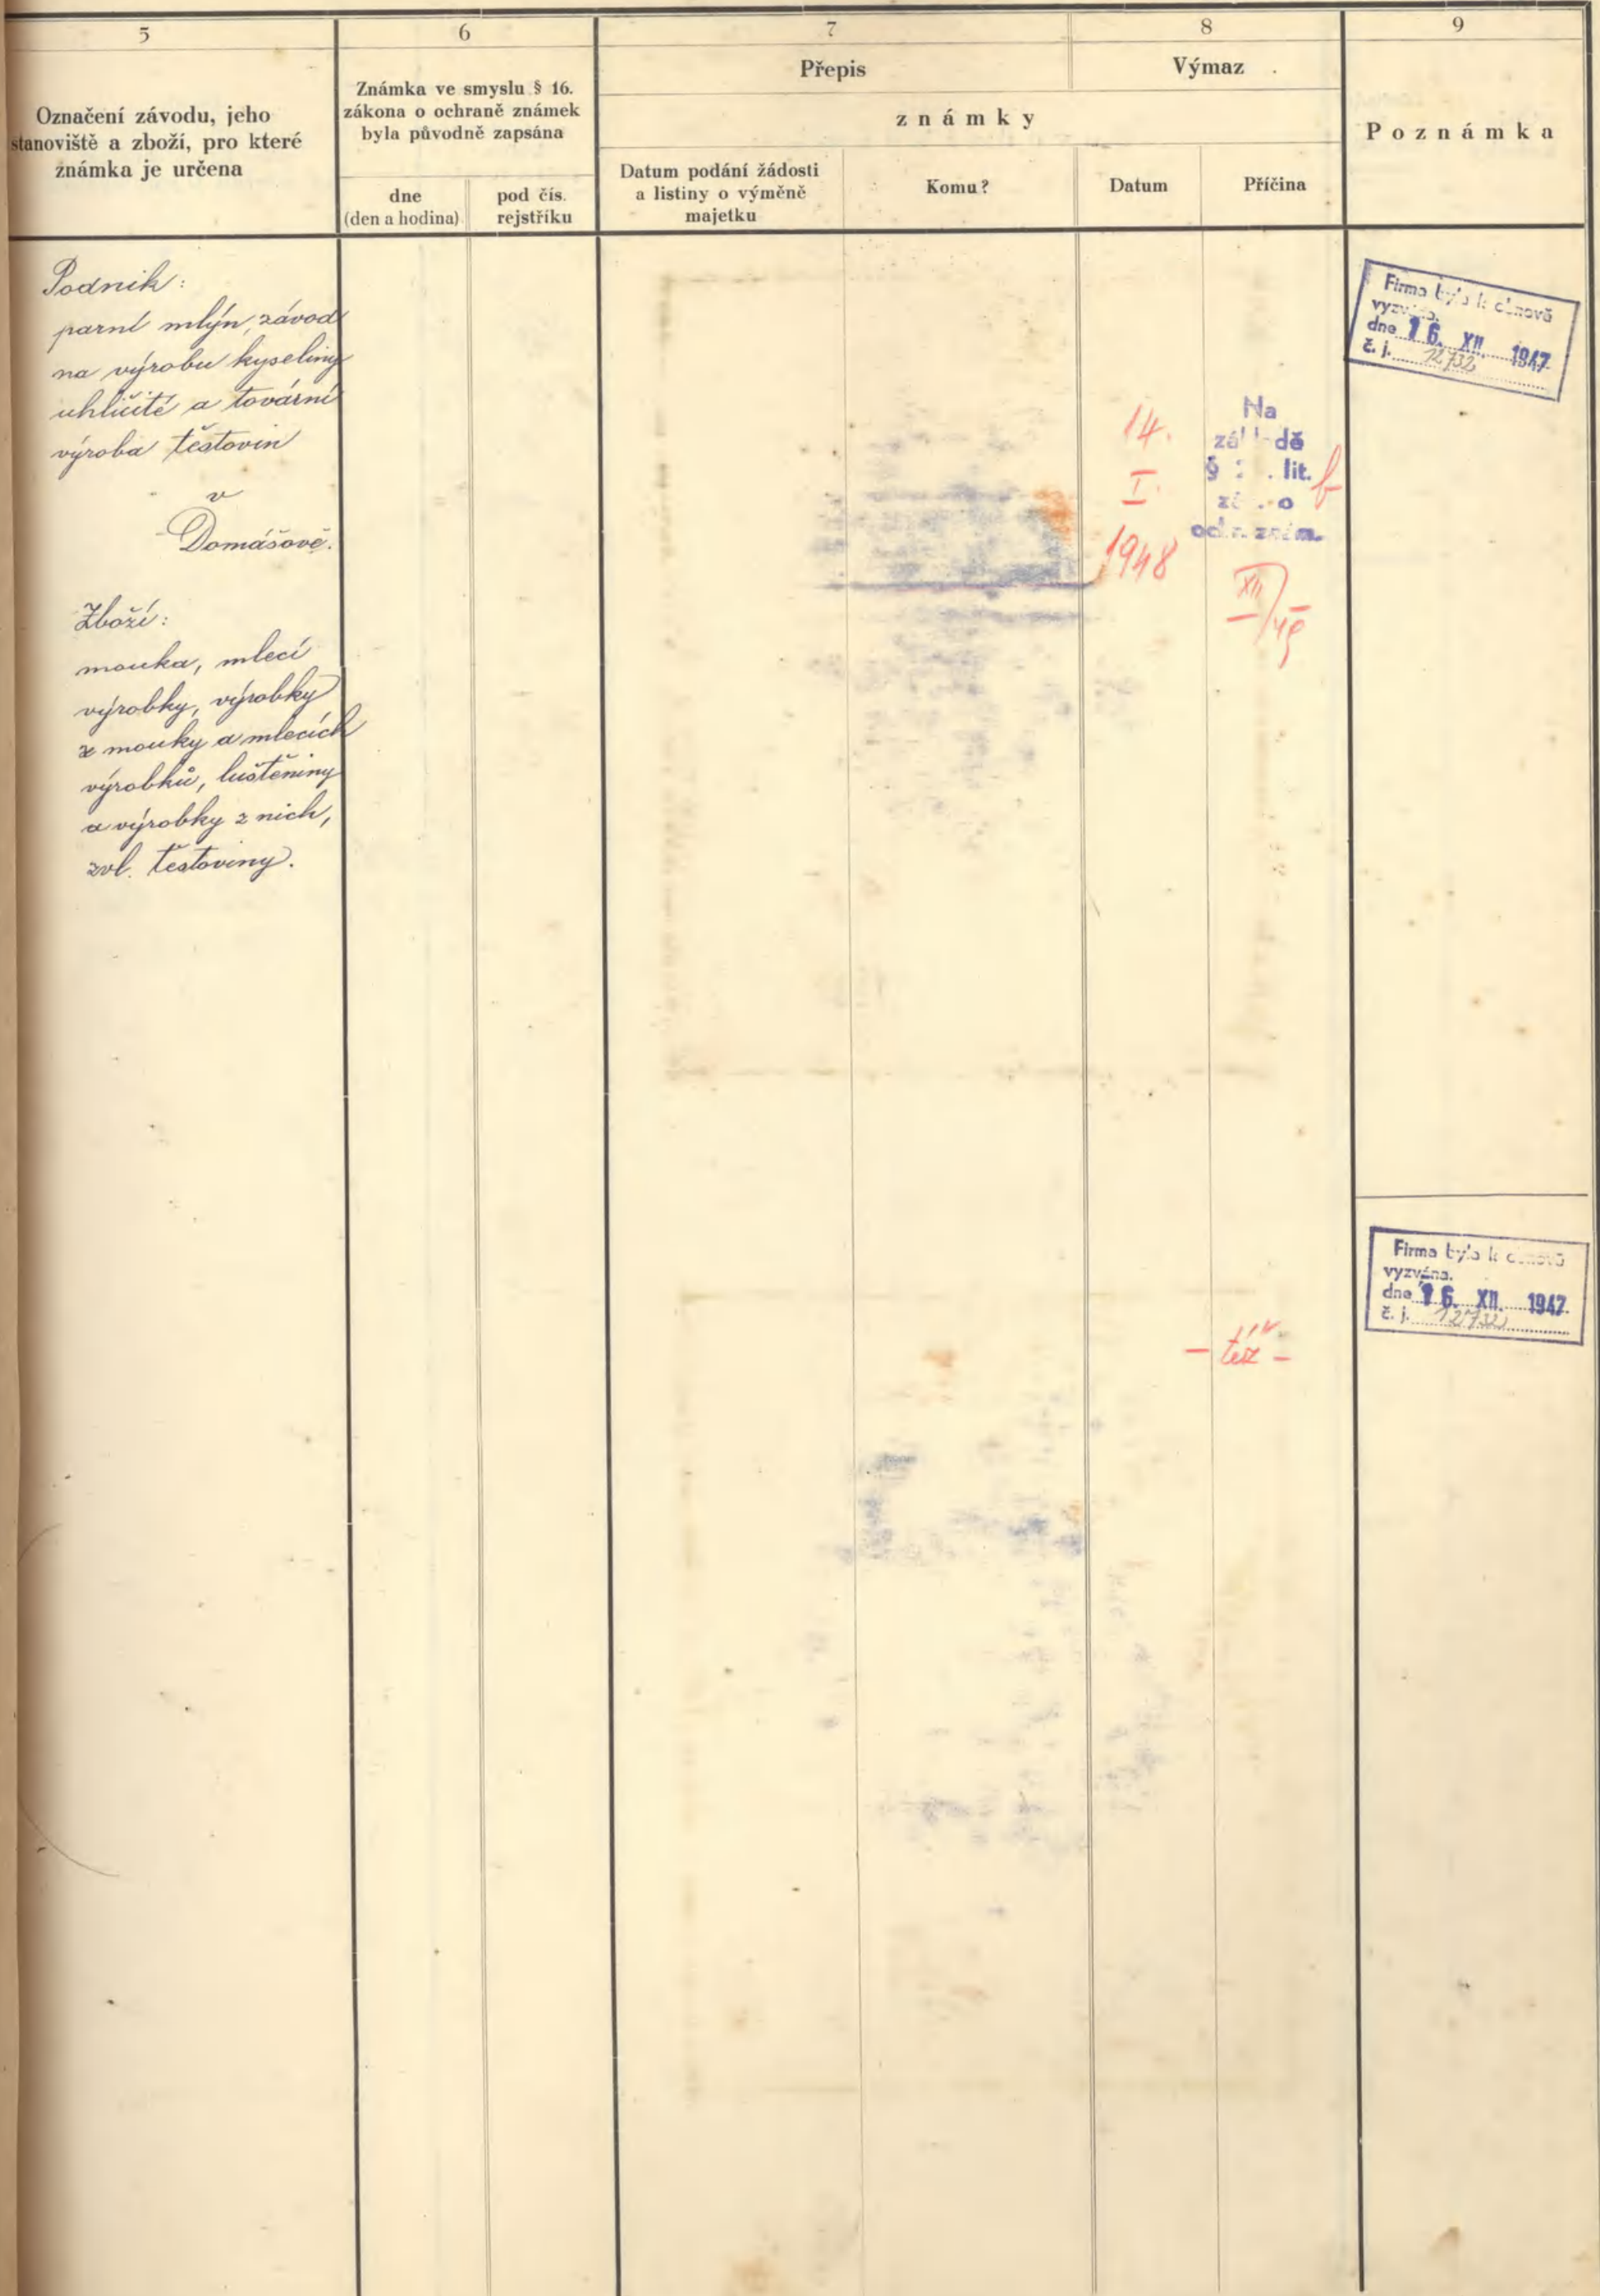 5
6
7
8
9
Označení závodu, jeho
stanoviště a zboží, pro které
známka je určena
Známka ve smyslu § 16.
zákona o ochraně známek
byla původně zapsána
dne
(den a hodina)
pod čís.
rejstříku
Přepis
Výmaz
známky
Datum podání žádosti
a listiny o výměně
majetku
Komu?
Datum
Příčina
Poznámka
Podnik:
parní mlýn, závod
na výrobu kyseliny
uhličité a tovární
výroba těstovin
v
Domášově.
Zboží:
mouka, mlecí
výrobky, výrobky
z mouky a mlecích
výrobků, luštěniny
a výrobky z nich,
zvl. těstoviny.
14.
I.
1948
Na
základě
§ lit. b
zák. o
ochr. znám.
XII
Firma byla k obnově
vyzvána.
dne 16. XII. 1947
č. j. 12732
- též -
Firma byla k obnově
vyzvána.
dne 16. XII. 1947
č. j. 12732